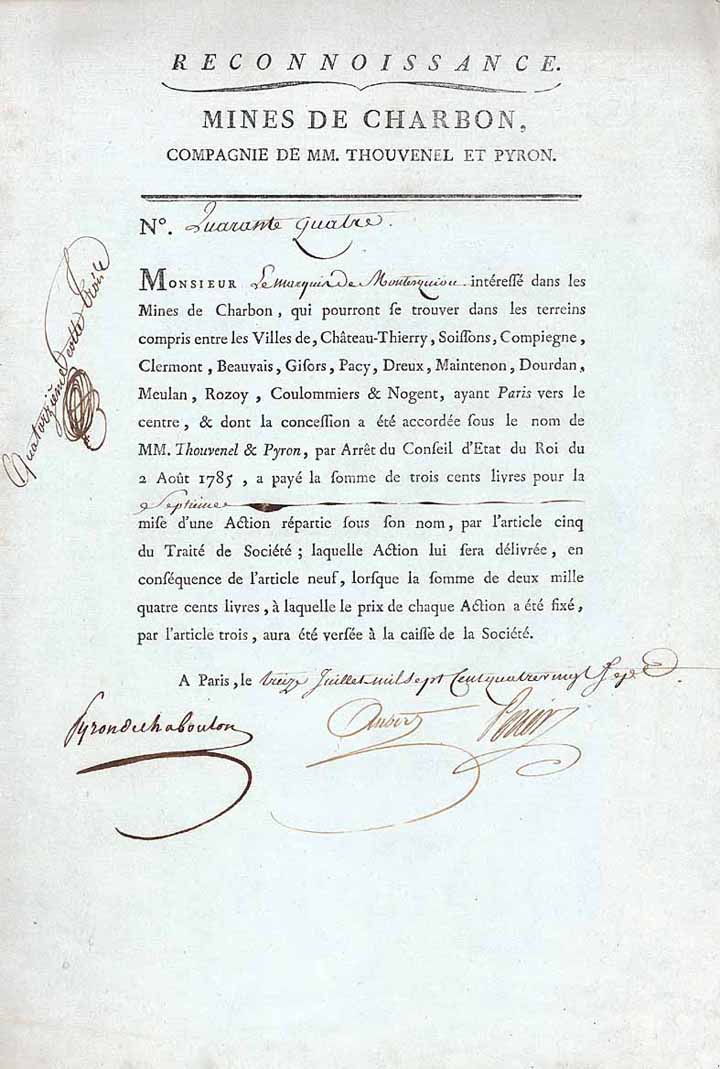 RECONNOISSANCE.
MINES DE CHARBON,
COMPAGNIE DE MM. THOUVENEL ET PYRON.
N°. Quarante Quatre.
Quatorzième cotte trois
MONSIEUR Le marquis de Montesquiou intéreſſé dans les
Mines de Charbon, qui pourront ſe trouver dans les terreins
compris entre les Villes de, Château-Thierry, Soiſſons, Compiegne,
Clermont, Beauvais, Giſors, Pacy, Dreux, Maintenon, Dourdan,
Meulan, Rozoy, Coulommiers & Nogent, ayant Paris vers le
centre, & dont la conceſſion a été accordée ſous le nom de
MM. Thouvenel & Pyron, par Arrêt du Conſeil d'Etat du Roi du
2 Août 1785, a payé la ſomme de trois cents livres pour la
Septieme
miſe d'une Action répartie ſous ſon nom, par l'article cinq
du Traité de Société ; laquelle Action lui ſera délivrée, en
conſéquence de l'article neuf, lorſque la ſomme de deux mille
quatre cents livres, à laquelle le prix de chaque Action a été fixé,
par l'article trois, aura été verſée à la caiſſe de la Société.
A Paris, le treize Juillet mil sept Cent quatre vingt Sept
Pyron de Chabouton